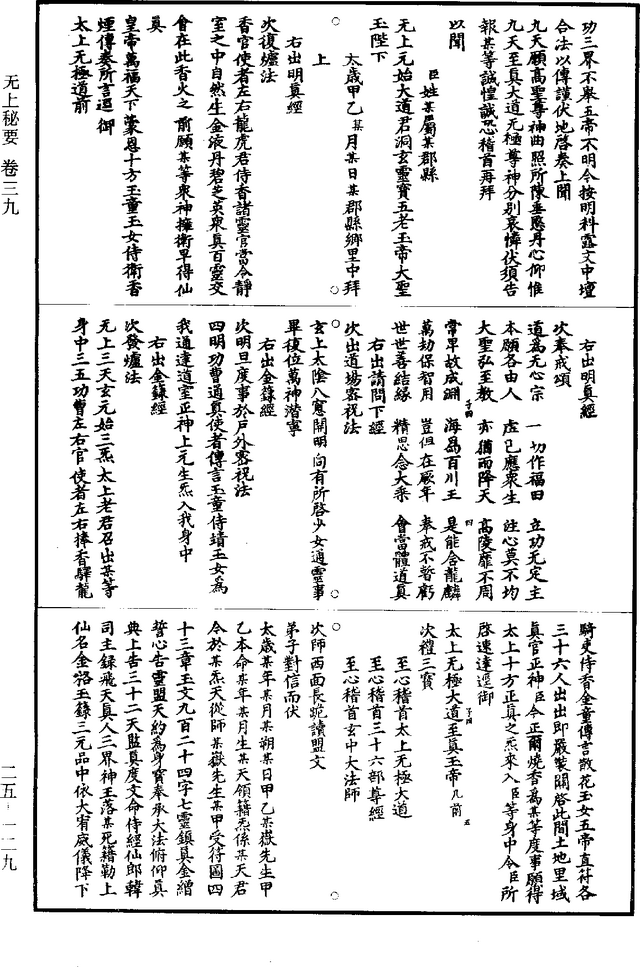 功三界不舉五帝不明今按明科露文中壇
合法以傳謹伏地啓奏上聞
九天願高聖尊神曲照所陳垂愍丹心仰惟
九天至真大道无極尊神分别哀憐伏須告
報某等誠惶誠恐稽首再拜
以聞
臣姓某屬某郡縣
无上元始大道君洞玄靈寶五老玉帝大聖
玉陛下
太歲甲乙某月某日某郡縣鄉里中拜
上
右出明真經
次復爐法
香官使者左右龍虎君侍香諸靈官當令静
室之中自然生金液丹碧芝英衆真百靈交
會在此香火之前願某等衆神擁衛早得仙
真
皇帝萬福天下蒙恩十方玉童玉女侍衛香
煙傳奏所言逕御
太上无極道前
右出明真經
次奉戒頌
道爲无心宗 一切作福田 立功无定主
本願各由人 虚己應衆生 注心莫不均
大聖弘至教 亦猶雨降天 高陵靡不周
常卑故成淵 海爲百川王 是能含龍麟
萬劫保智用 豈但在厥年 奉戒不暫虧
世世善結緣 精思念大乘 會當體道真
右出請問下經
次出道場密祝法
玄上太陰八窻開明向有所啓少女通靈事
畢復位萬神潜寧
右出金籙經
次明旦度事於户外密祝法
四明功曹通真使者傳言玉童侍靖玉女爲
我通達道室正神上元生炁入我身中
右出金籙經
次發爐法
无上三天玄元始三炁太上老君召出某等
身中三五功曹左右官使者左右捧香驛龍
騎吏侍香金童傳言散花玉女五帝直符各
三十六人出出即嚴裝關啓此間土地里域
真官正神臣今正爾燒香爲某等度事願得
太上十方正真之炁來入臣等身中令臣所
啓速達逕御
太上无極大道至真玉帝几前
次禮三寶
至心稽首太上无極大道
至心稽首三十六部尊經
至心稽首玄中大法師
次師西面長跪讀盟文
弟子對信而伏
太歲某年某月某朔某日甲乙某嶽先生甲
乙本命某年某月生某天領籍炁係某天君
今於某炁天從師某嶽先生某甲受待圖四
十三章玉文九百二十四字七靈鎮真金繒
誓心告靈盟天約爲身寶奉承大法俯仰真
典上告三十二天監真度文命侍經仙郎韓
司主録飛天真人三界神王落某死籍勒上
仙名金格玉籙三元品中依大宥威儀降下
无上秘要 卷三九
二五-一二九